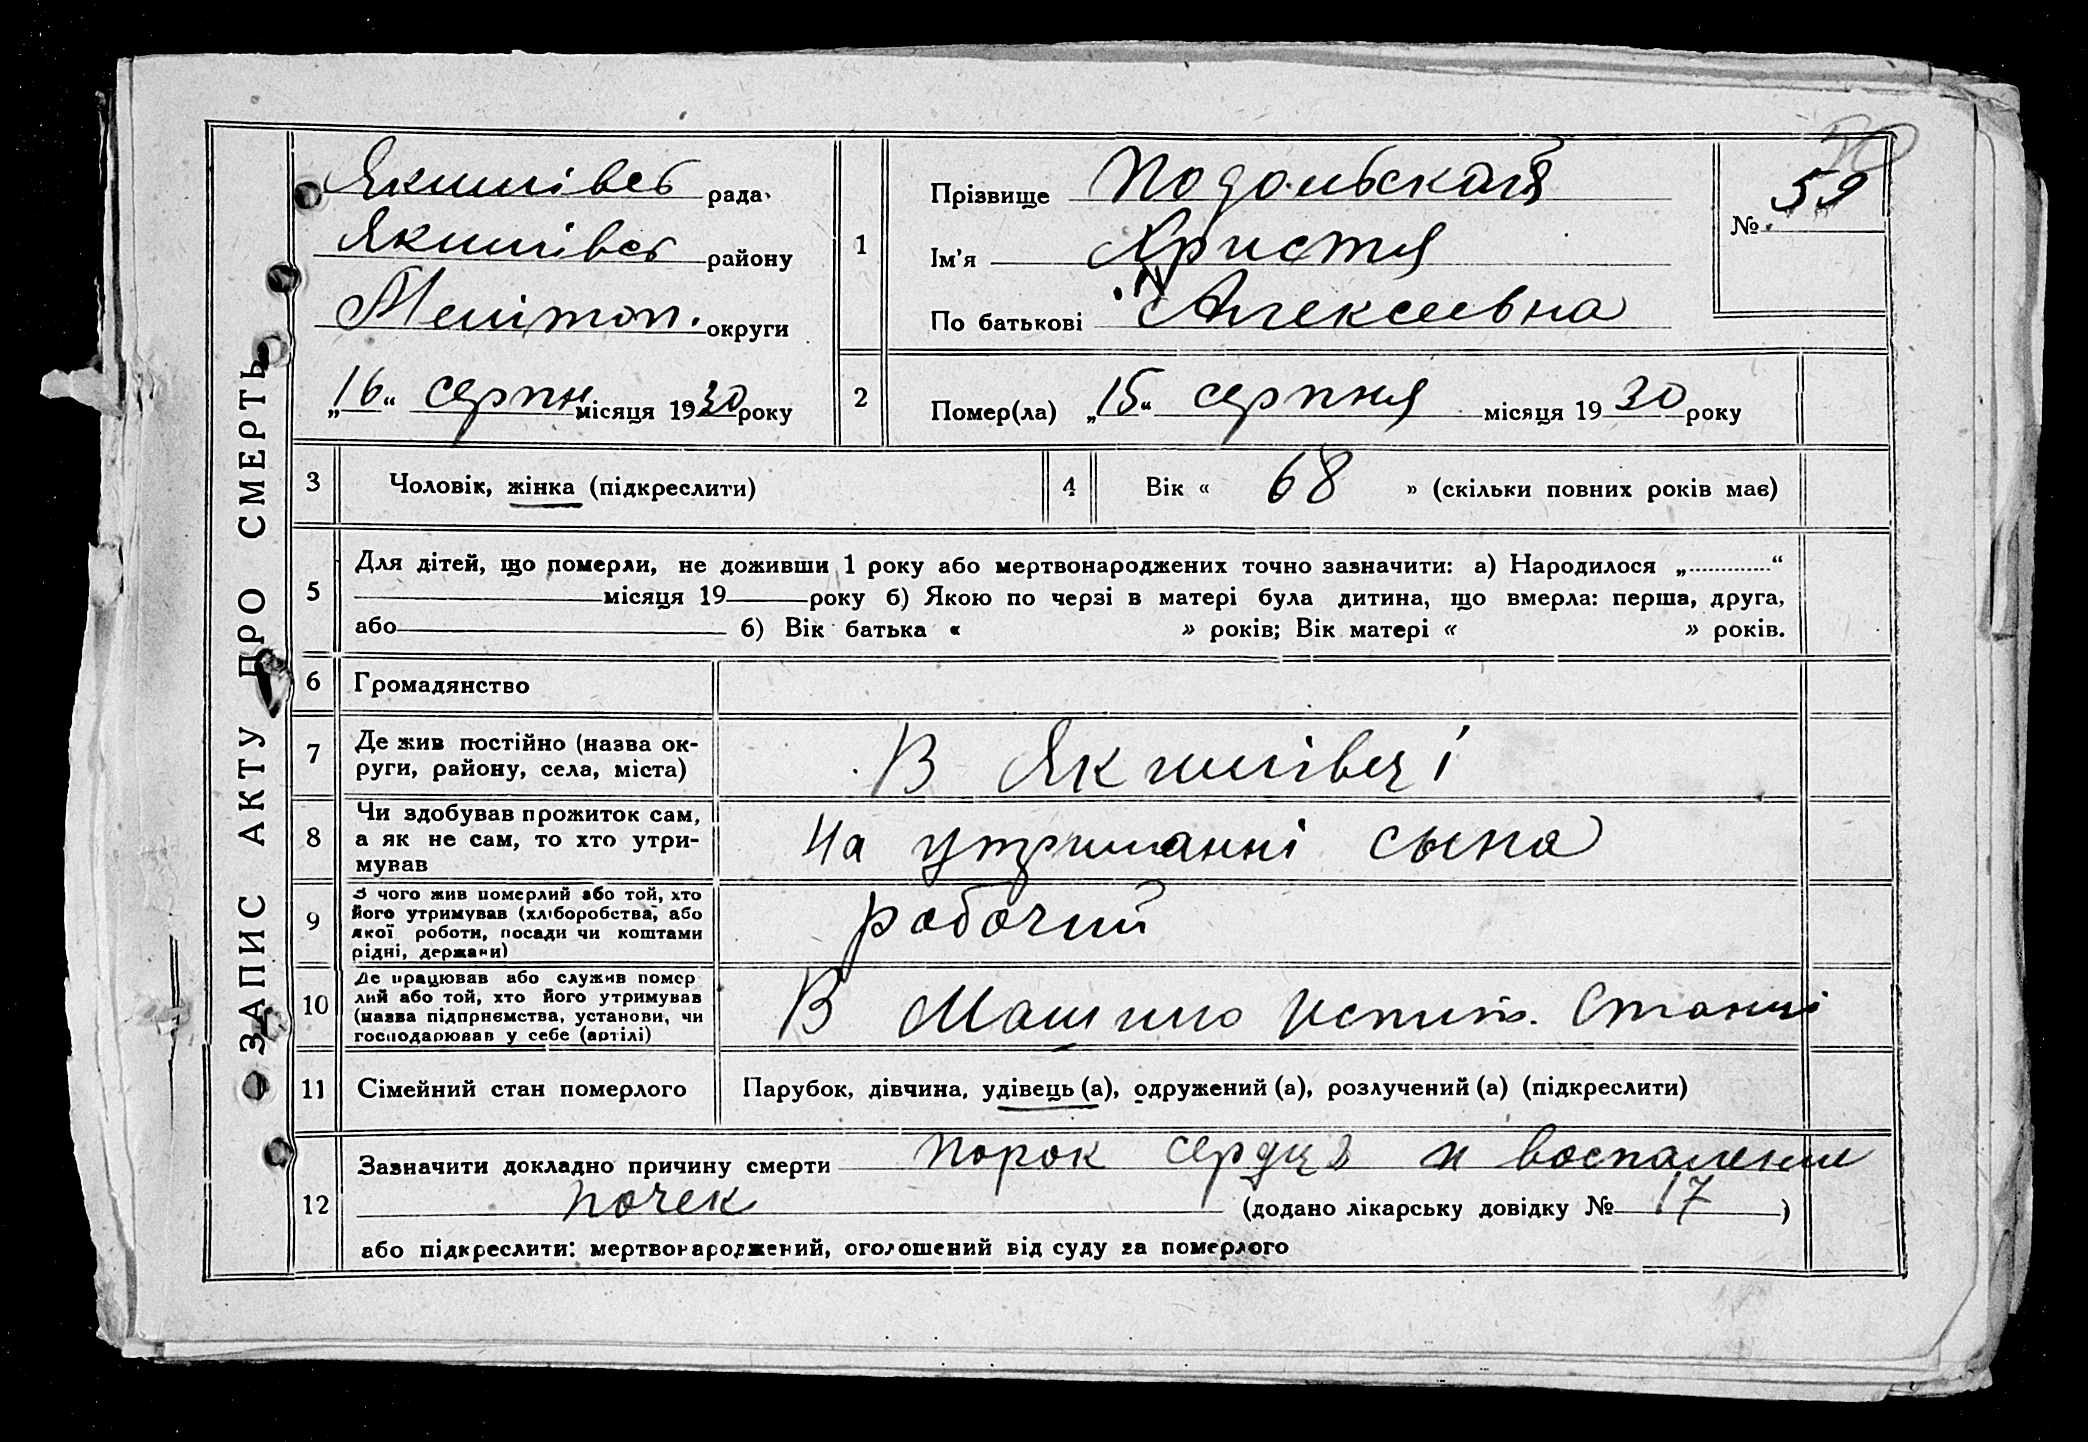 ЗАПИС АКТУ ПРО СМЕРТЬ
Якимівсь рада
Якимівсь району
Мелітоп. округи
„16“ серпн місяця 1930 року
1
Прізвище Подольская
Ім'я Христя
По батькові Алексеевна
№ 59
2
Помер(ла) „15“ серпня місяця 1930 року
3 Чоловік, жінка (підкреслити)
4 Вік « 68 » (скільки повних років має)
5
Для дітей, що померли, не доживши 1 року або мертвонароджених точно зазначити: а) Народилося „ “
місяця 19 року б) Якою по черзі в матері була дитина, що вмерла: перша, друга,
або б) Вік батька « » років; Вік матері « » років.
6 Громадянство
7 Де жив постійно (назва ок-
руги, району, села, міста)
В Якимівці
8 Чи здобував прожиток сам,
а як не сам, то хто утри-
мував
На утриманні сына
9 З чого жив померлий або той, хто
його утримував (хліборобства, або
якої роботи, посади чи коштами
рідні, держави)
рабочий
10 Де працював або служив помер
лий або той, хто його утримував
(назва підприємства, установи, чи
господарював у себе (артілі)
В Машино Испит. Станції
11 Сімейний стан померлого
Парубок, дівчина, удівець (а), одружений (а), розлучений (а) (підкреслити)
12
Зазначити докладно причину смерти порок сердца и воспаление
почек (додано лікарську довідку № 17 )
або підкреслити: мертвонароджений, оголошений від суду за померлого